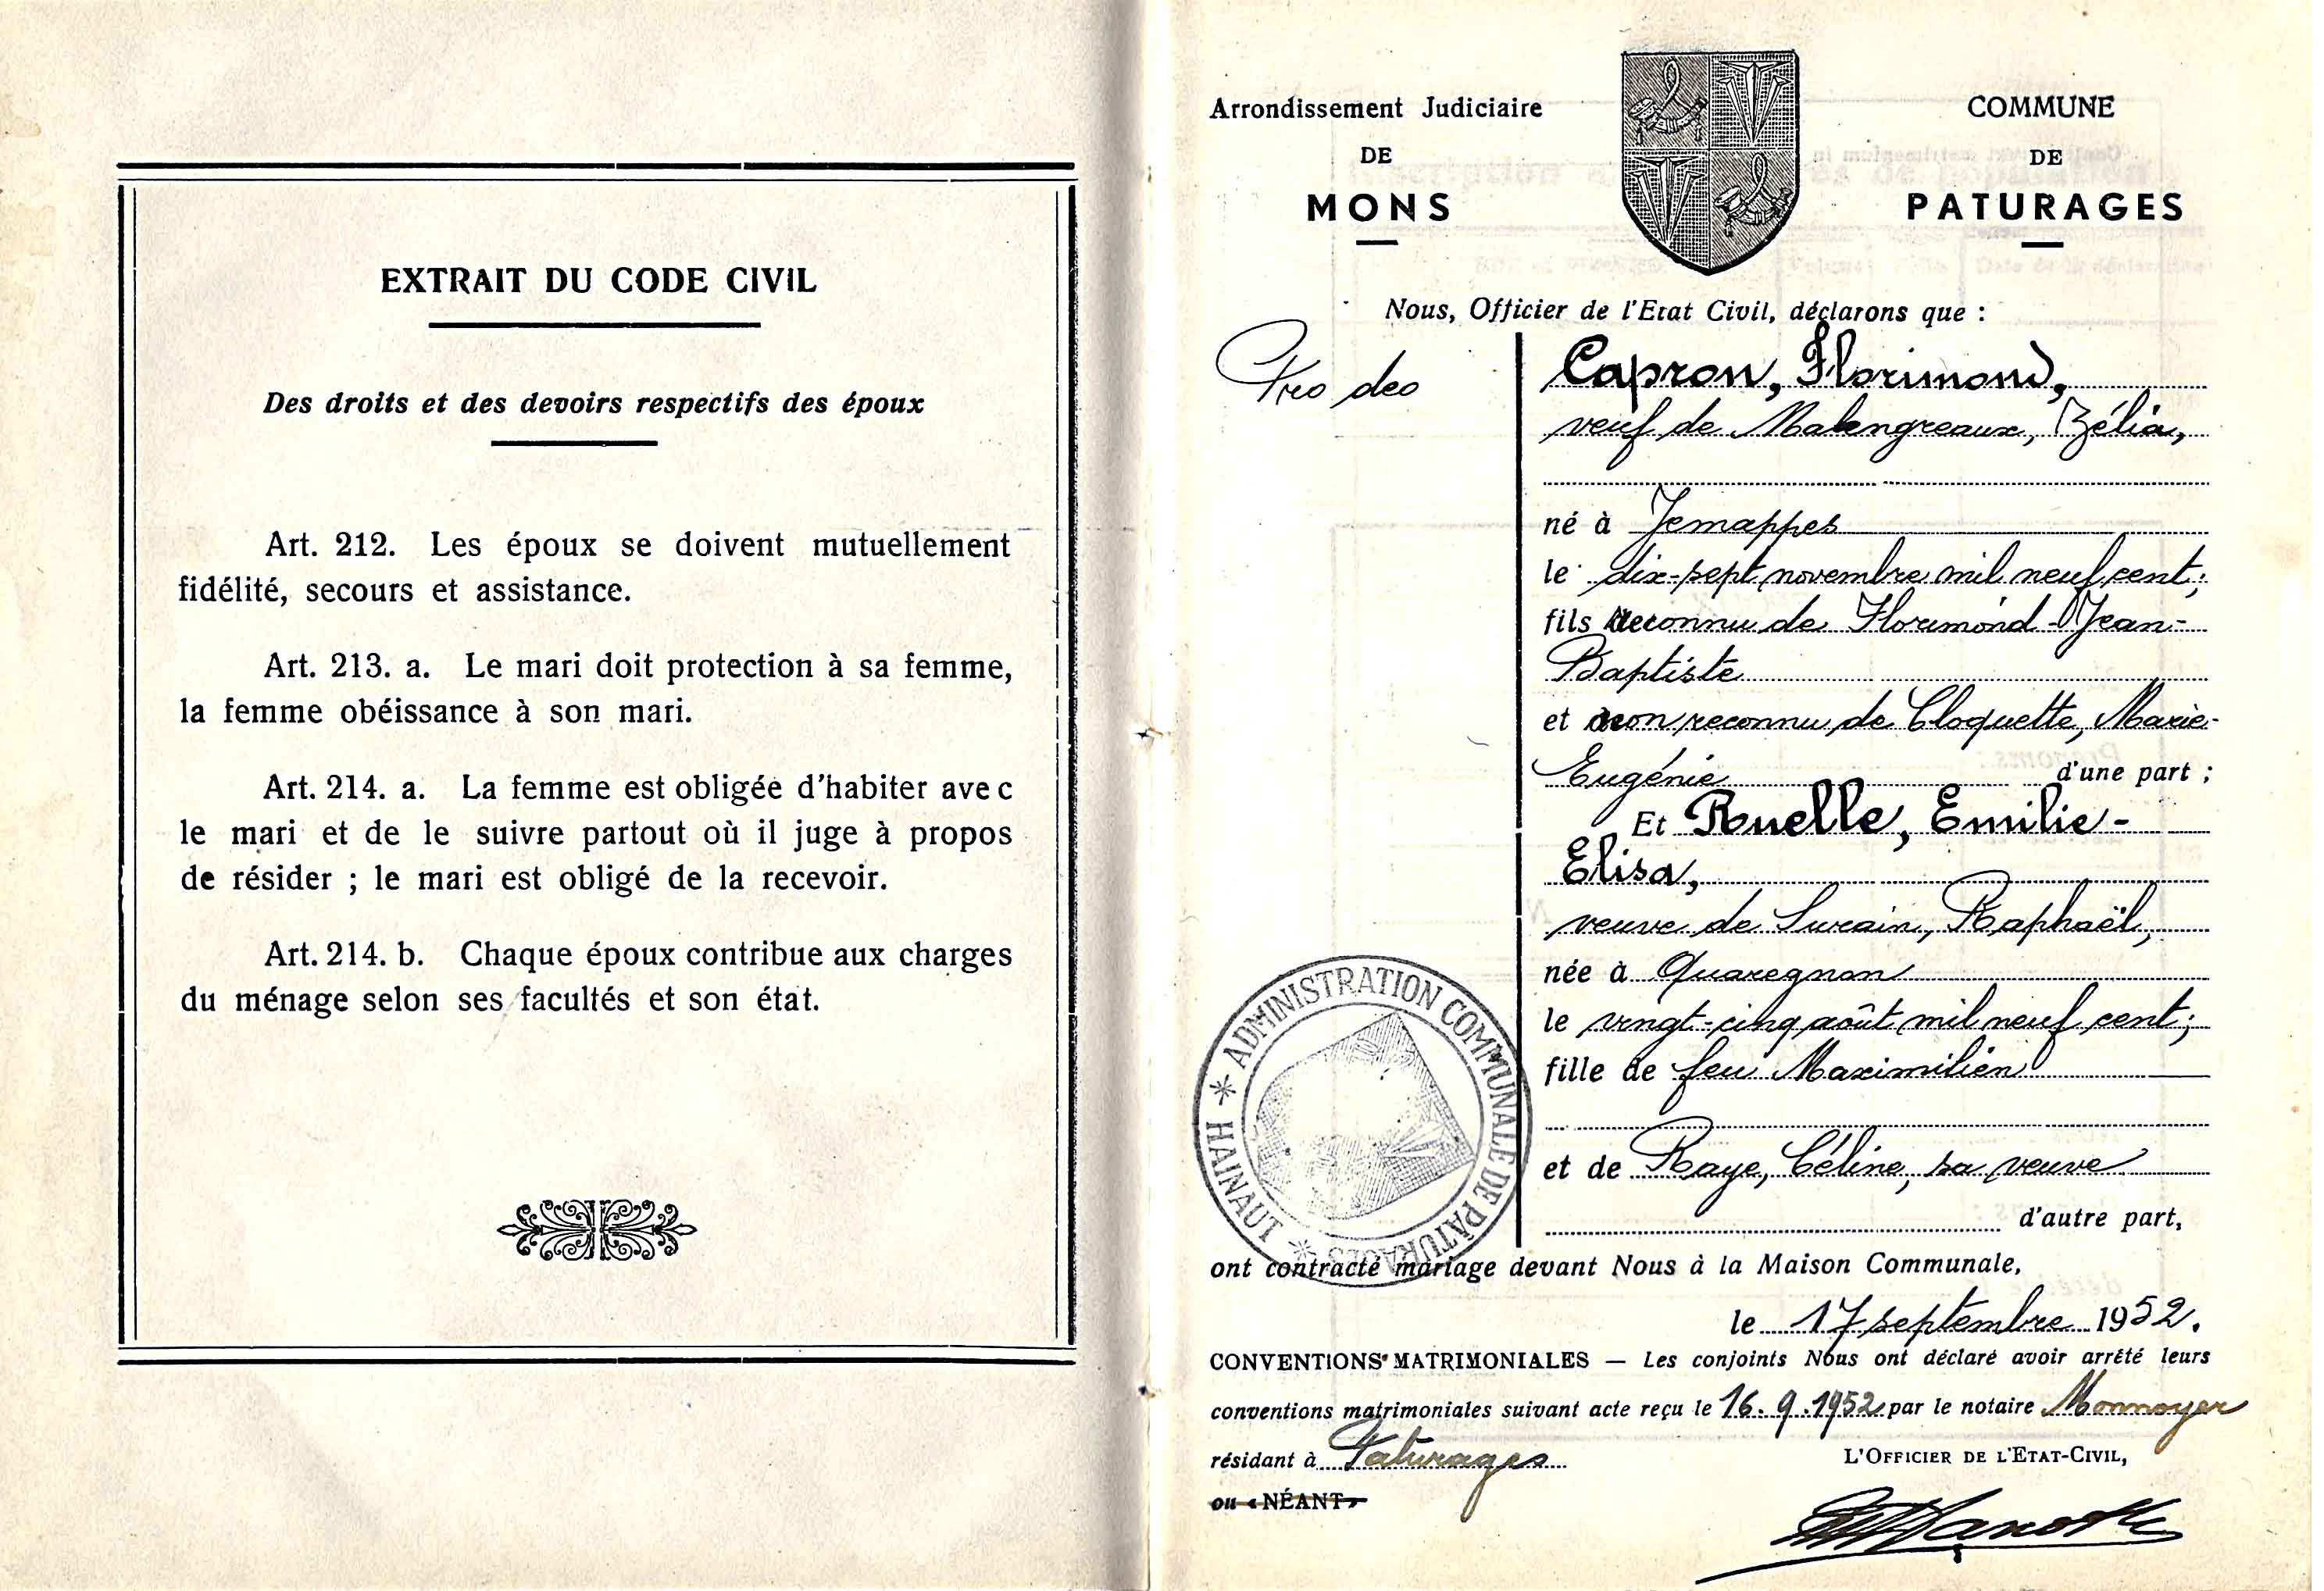 EXTRAIT DU CODE CIVIL
Des droits et des devoirs respectifs des époux
Art. 212. Les époux se doivent mutuellement
fidélité, secours et assistance.
Art. 213. a. Le mari doit protection à sa femme,
la femme obéissance à son mari.
Art. 214. a. La femme est obligée d'habiter avec
le mari et de le suivre partout où il juge à propos
de résider ; le mari est obligé de la recevoir.
Art. 214. b. Chaque époux contribue aux charges
du ménage selon ses facultés et son état.
Arrondissement Judiciaire
DE
MONS
COMMUNE
DE
PATURAGES
Nous, Officier de l'Etat Civil, déclarons que :
Pro deo
Capron, Florimond,
veuf de Malengreaux, Zélia,
né à Jemappes
le dix-sept novembre mil neuf cent;
fils reconnu de Florimond-Jean-
Baptiste
et non reconnu de Cloquette, Marie-
Eugénie d'une part ;
Et Ruelle, Emilie-
Elisa,
veuve de Surain, Raphaël,
née à Quaregnon
le vingt-cinq août mil neuf cent;
fille de feu Maximilien
et de Raye, Céline, sa veuve
d'autre part,
ADMINISTRATION COMMUNALE DE PÂTURAGES * HAINAUT *
ont contracté mariage devant Nous à la Maison Communale,
le 17 septembre 1952.
CONVENTIONS MATRIMONIALES — Les conjoints Nous ont déclaré avoir arrêté leurs
conventions matrimoniales suivant acte reçu le 16.9.1952 par le notaire Monnoyer
résidant à Paturages
L'OFFICIER DE L'ETAT-CIVIL,
ou « NÉANT »